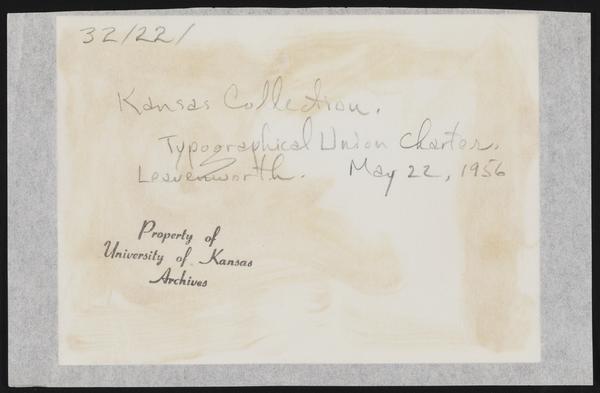 32/22/
Kansas Collection.
Typographical Union Charter.
Leavenworth. May 22, 1956
Property of
University of Kansas
Archives